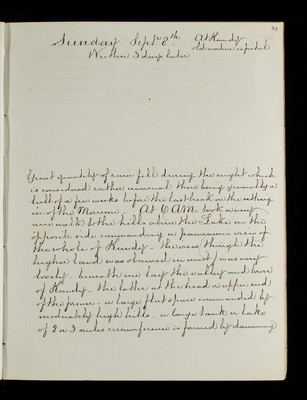 93
Sunday Sept. 8th At Kandy
Written 3 days later old native capital
Great quantity of rain fell during the night which
is considered rather unusual there being generally a
lull of a few weeks before the last break or the setting
in of the Monsoon. At 6 AM took a very
nice walk to the hills above the Lake on the
opposite side commanding a panoramic view of
the whole of Kandy - the view though the
higher land was obscured in mist, was very
lovely - beneath me lay the valley and town
of Kandy - the latter at the head or upper end
of the former - a large flat space surrounded by
moderately high hills. a large tank or lake
of 2 or 3 miles circumference is formed by damming